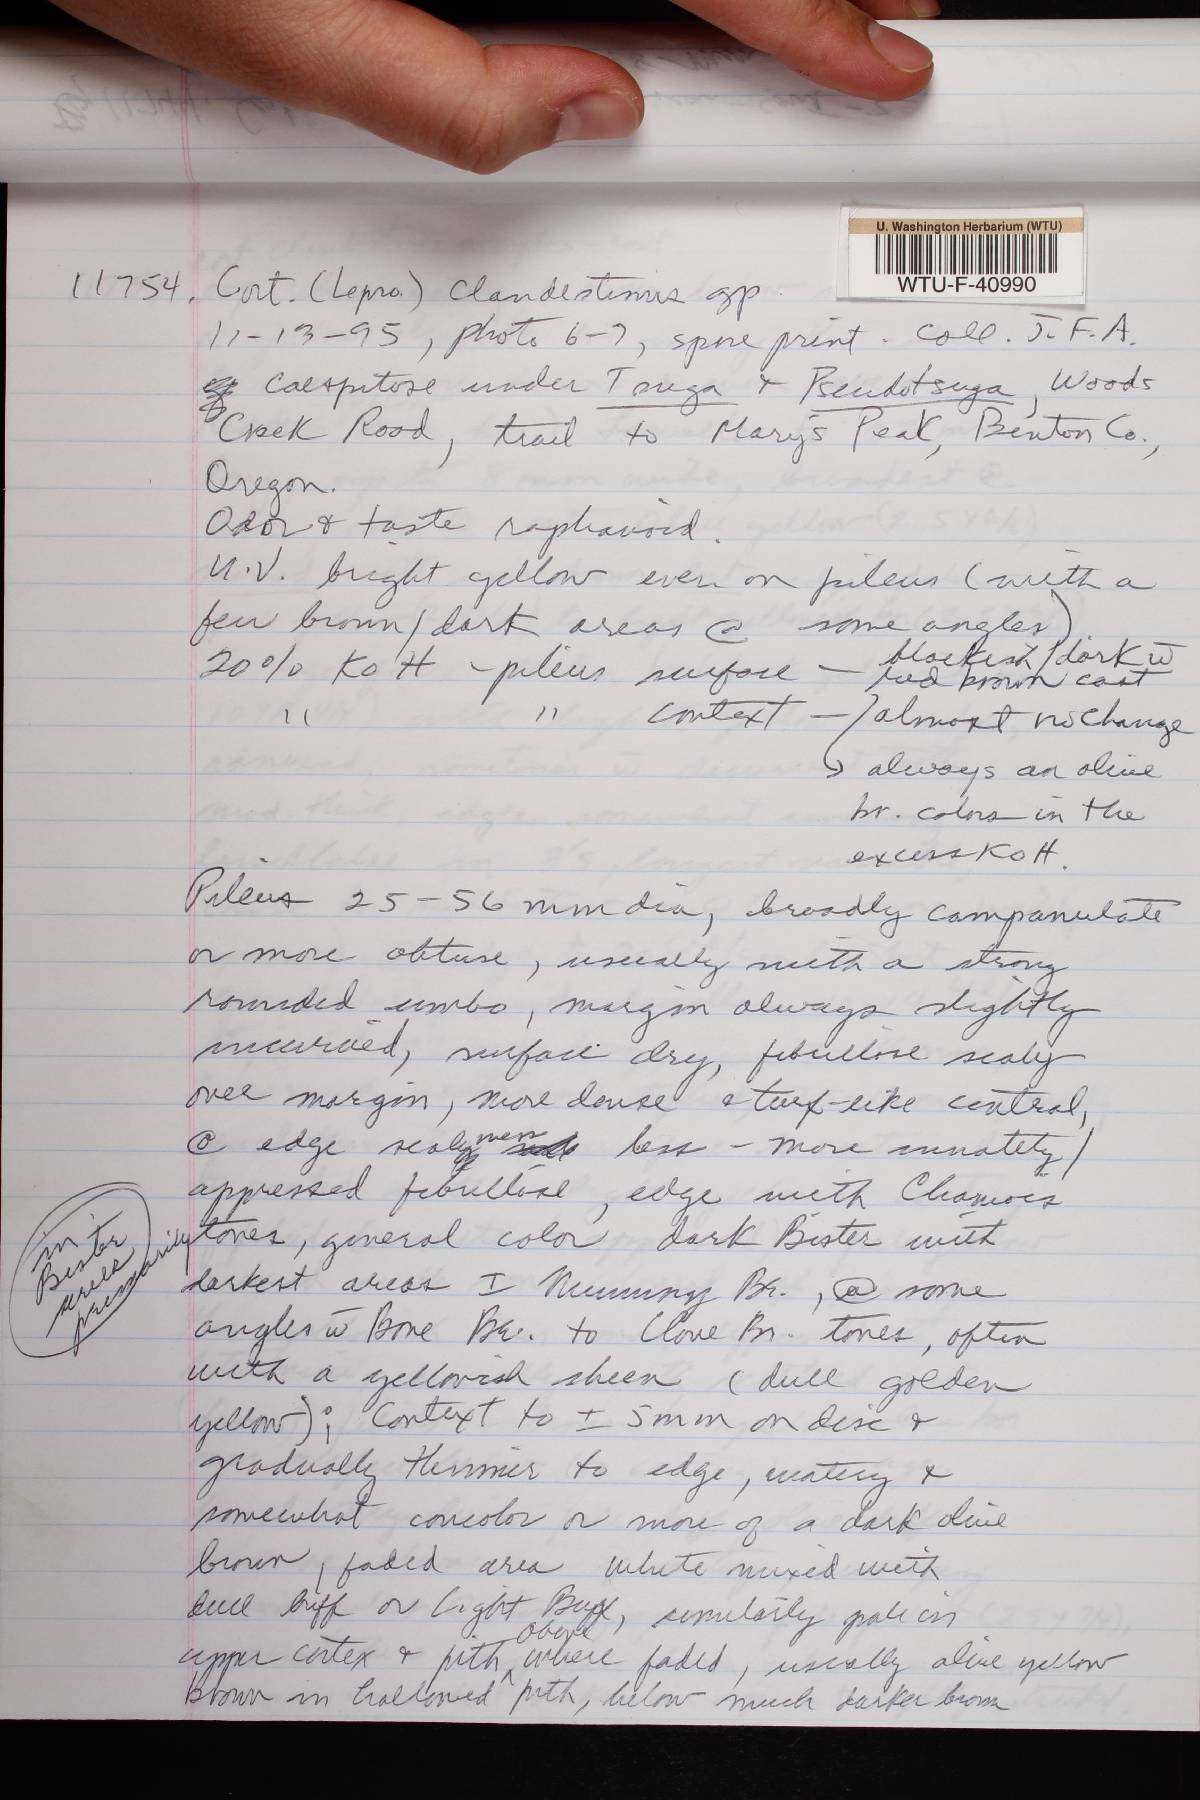 U. Washington Herbarium (WTU)
WTU-F-40990
11754. Cort. (Lepro.) clandestinus gp
11-13-95, photo 6-7, spore print. coll. J.F.A.
caespitose under Tsuga & Pseudotsuga, Woods
Creek Road, trail to Mary's Peak, Benton Co.,
Oregon.
Odor & taste raphanoid.
U.V. bright yellow even on pileus (with a
few brown/dark areas @ some angles)
20% KOH - pileus surface - blackish/dark w̄
red brown cast
" " context - almost no change
always an olive
br. colors in the
excess KOH.
Pileus 25-56 mm dia, broadly campanulate
or more obtuse, usually with a strong
rounded umbo, margin always slightly
incurved, surface dry, fibrillose scaly
over margin, more dense & turf-like central,
@ edge scalyness less - more innately/
appressed fibrillose, edge with Chamois
tones, general color dark Bister with
darkest areas ± Mummy Br., @ some
angles w̄ Bone Br. to Clove Br. tones, often
with a yellowish sheen (dull golden
yellow); Context to ± 5mm on disc &
gradually thinner to edge, watery &
somewhat concolor or more of a dark olive
brown, faded area white mixed with
dull buff or Light Buff, similarly pale in
upper cortex & pith above where faded, usually olive yellow
brown in hollowed pith, below much darker brown
in Bister series primarily